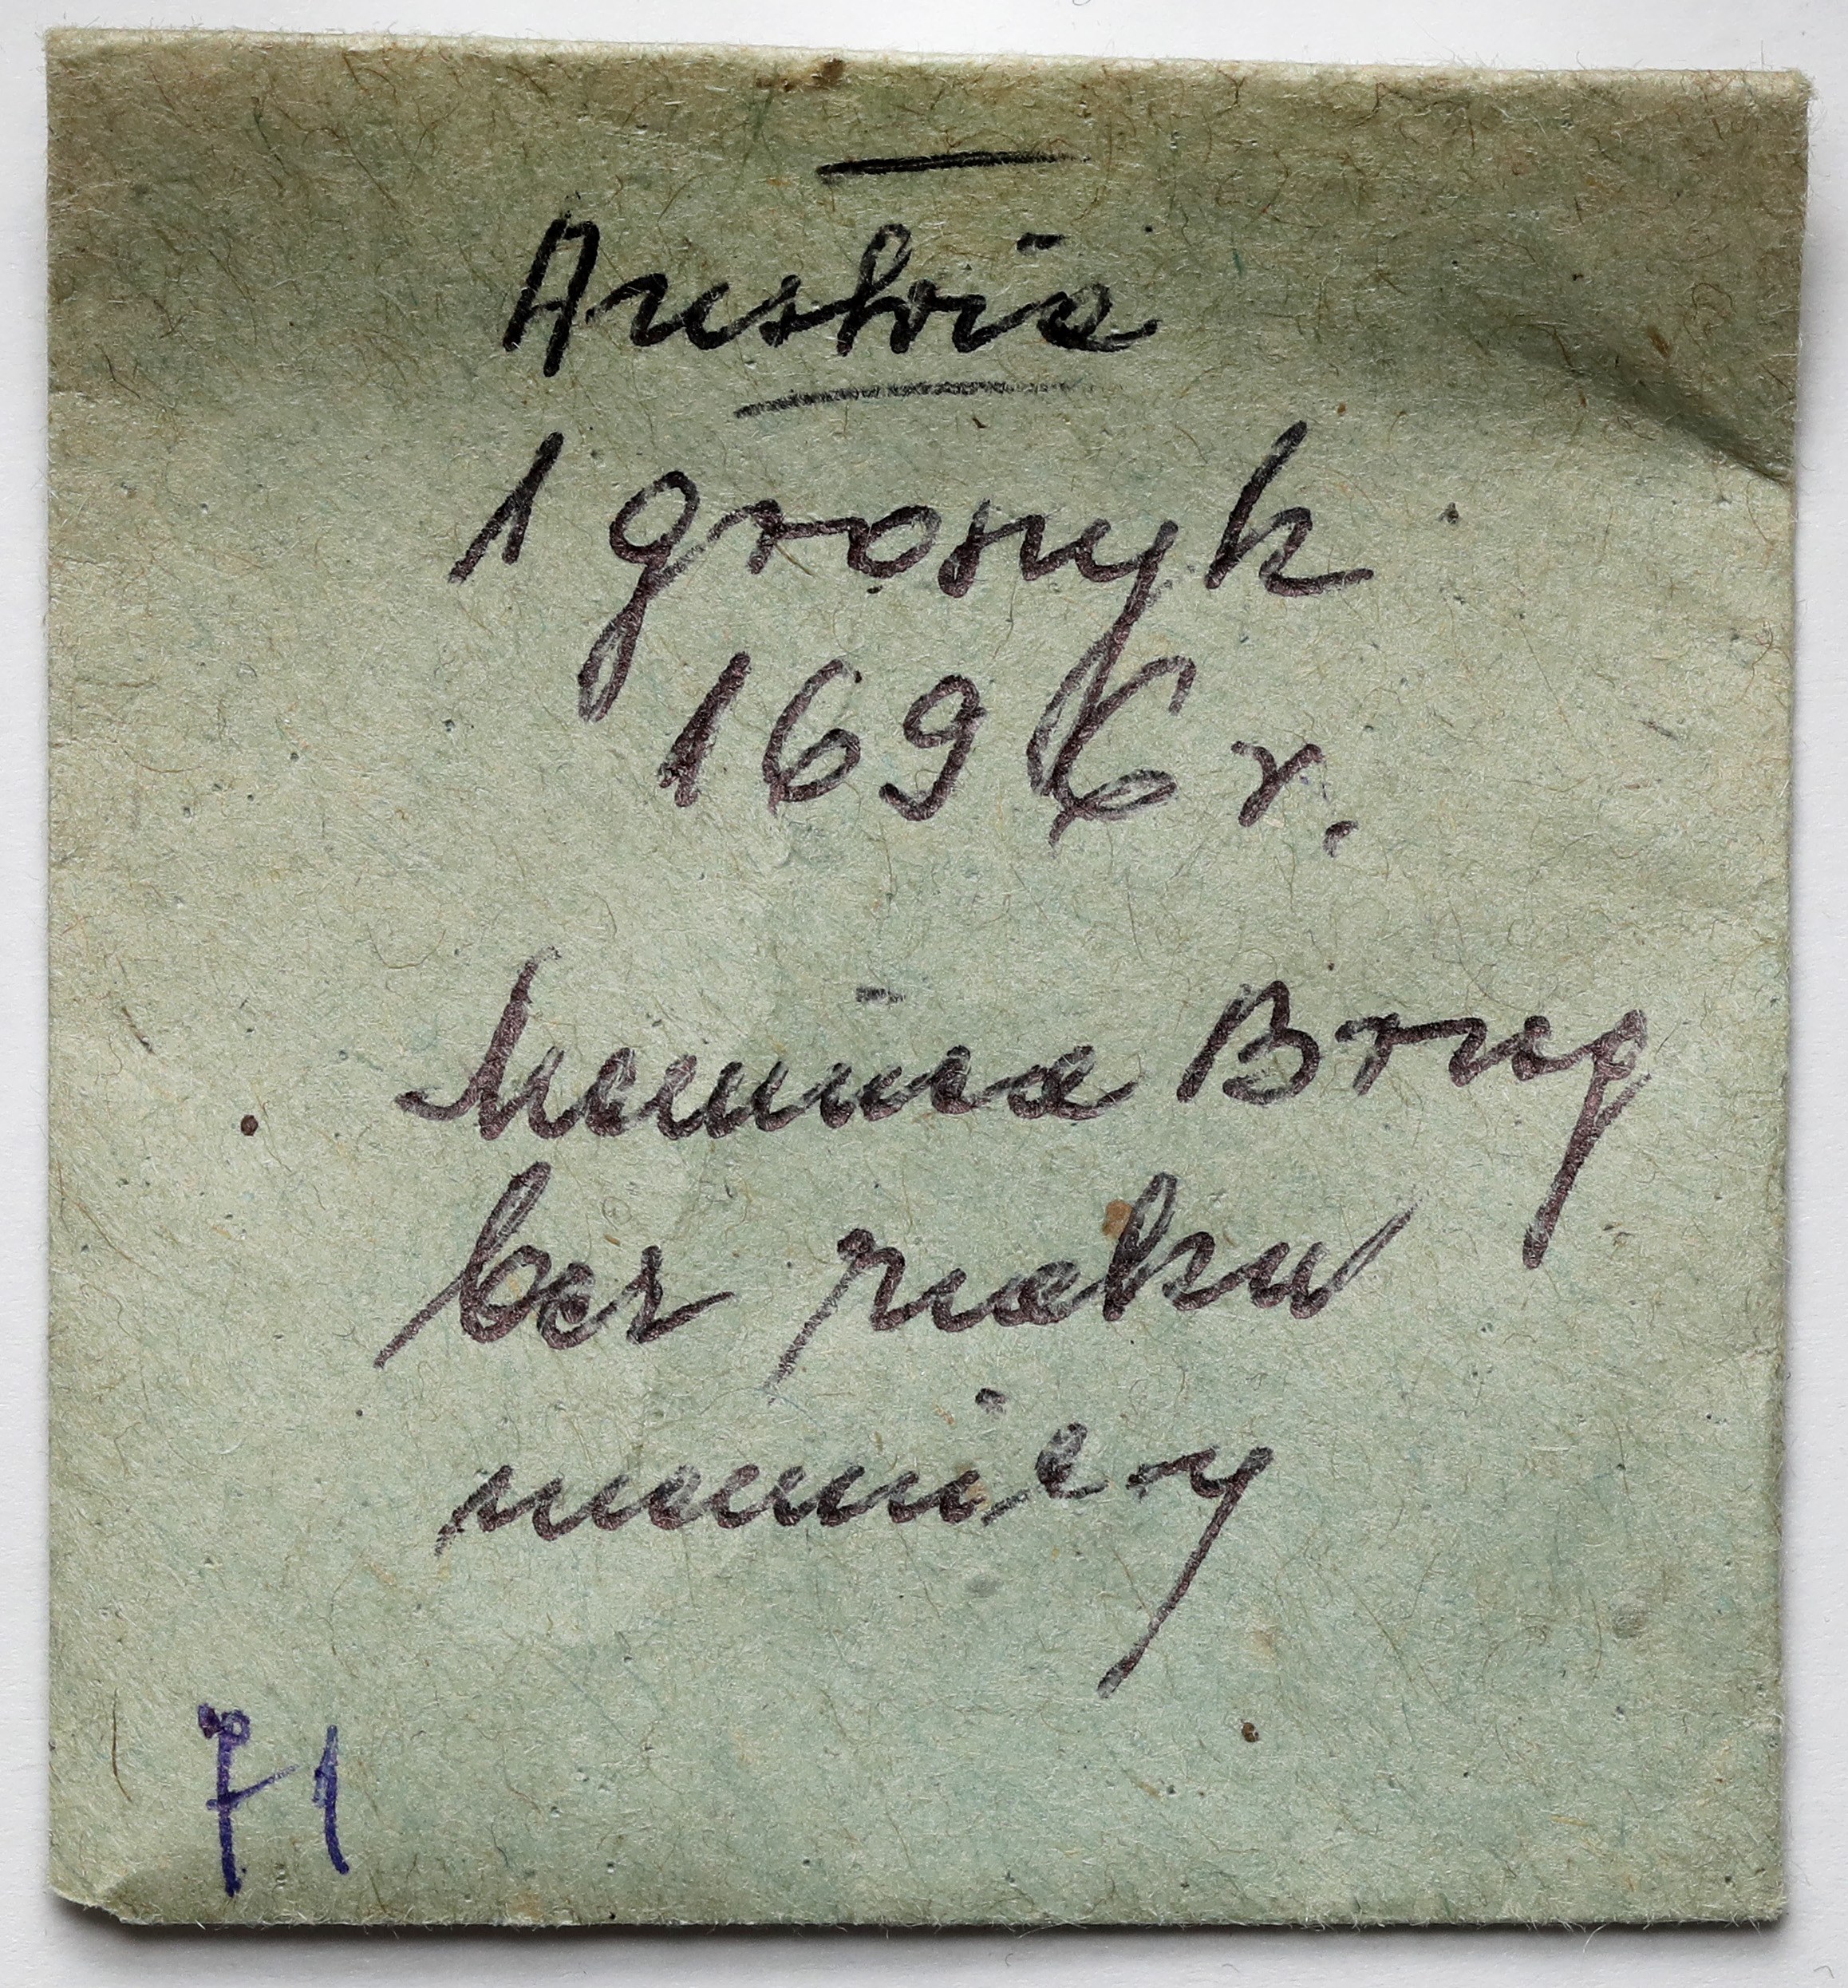 Austria
1 groszyk
1696 r.
Mennica Brzeg
bez znaku
mennicy
71